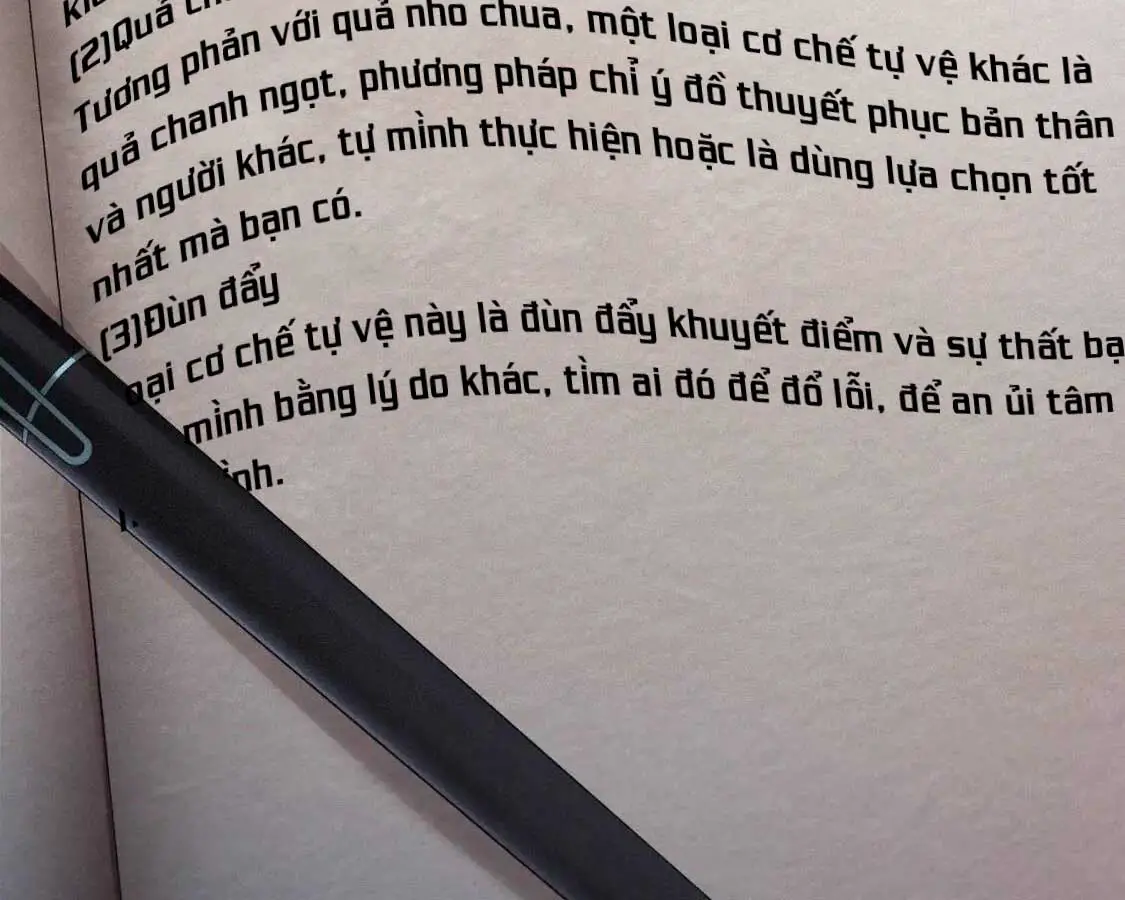 (2)Quả
Tương phản với quả nho chua, một loại cơ chế tự vệ khác là
quả chanh ngọt, phương pháp chỉ ý đồ thuyết phục bản thân
và người khác, tự mình thực hiện hoặc là dùng lựa chọn tốt
nhất mà bạn có.
(3)Đùn đẩy
cơ chế tự vệ này là đùn đẩy khuyết điểm và sự thất
mình bằng lý do khác, tìm ai đó để đổ lỗi, để an ủi tâm